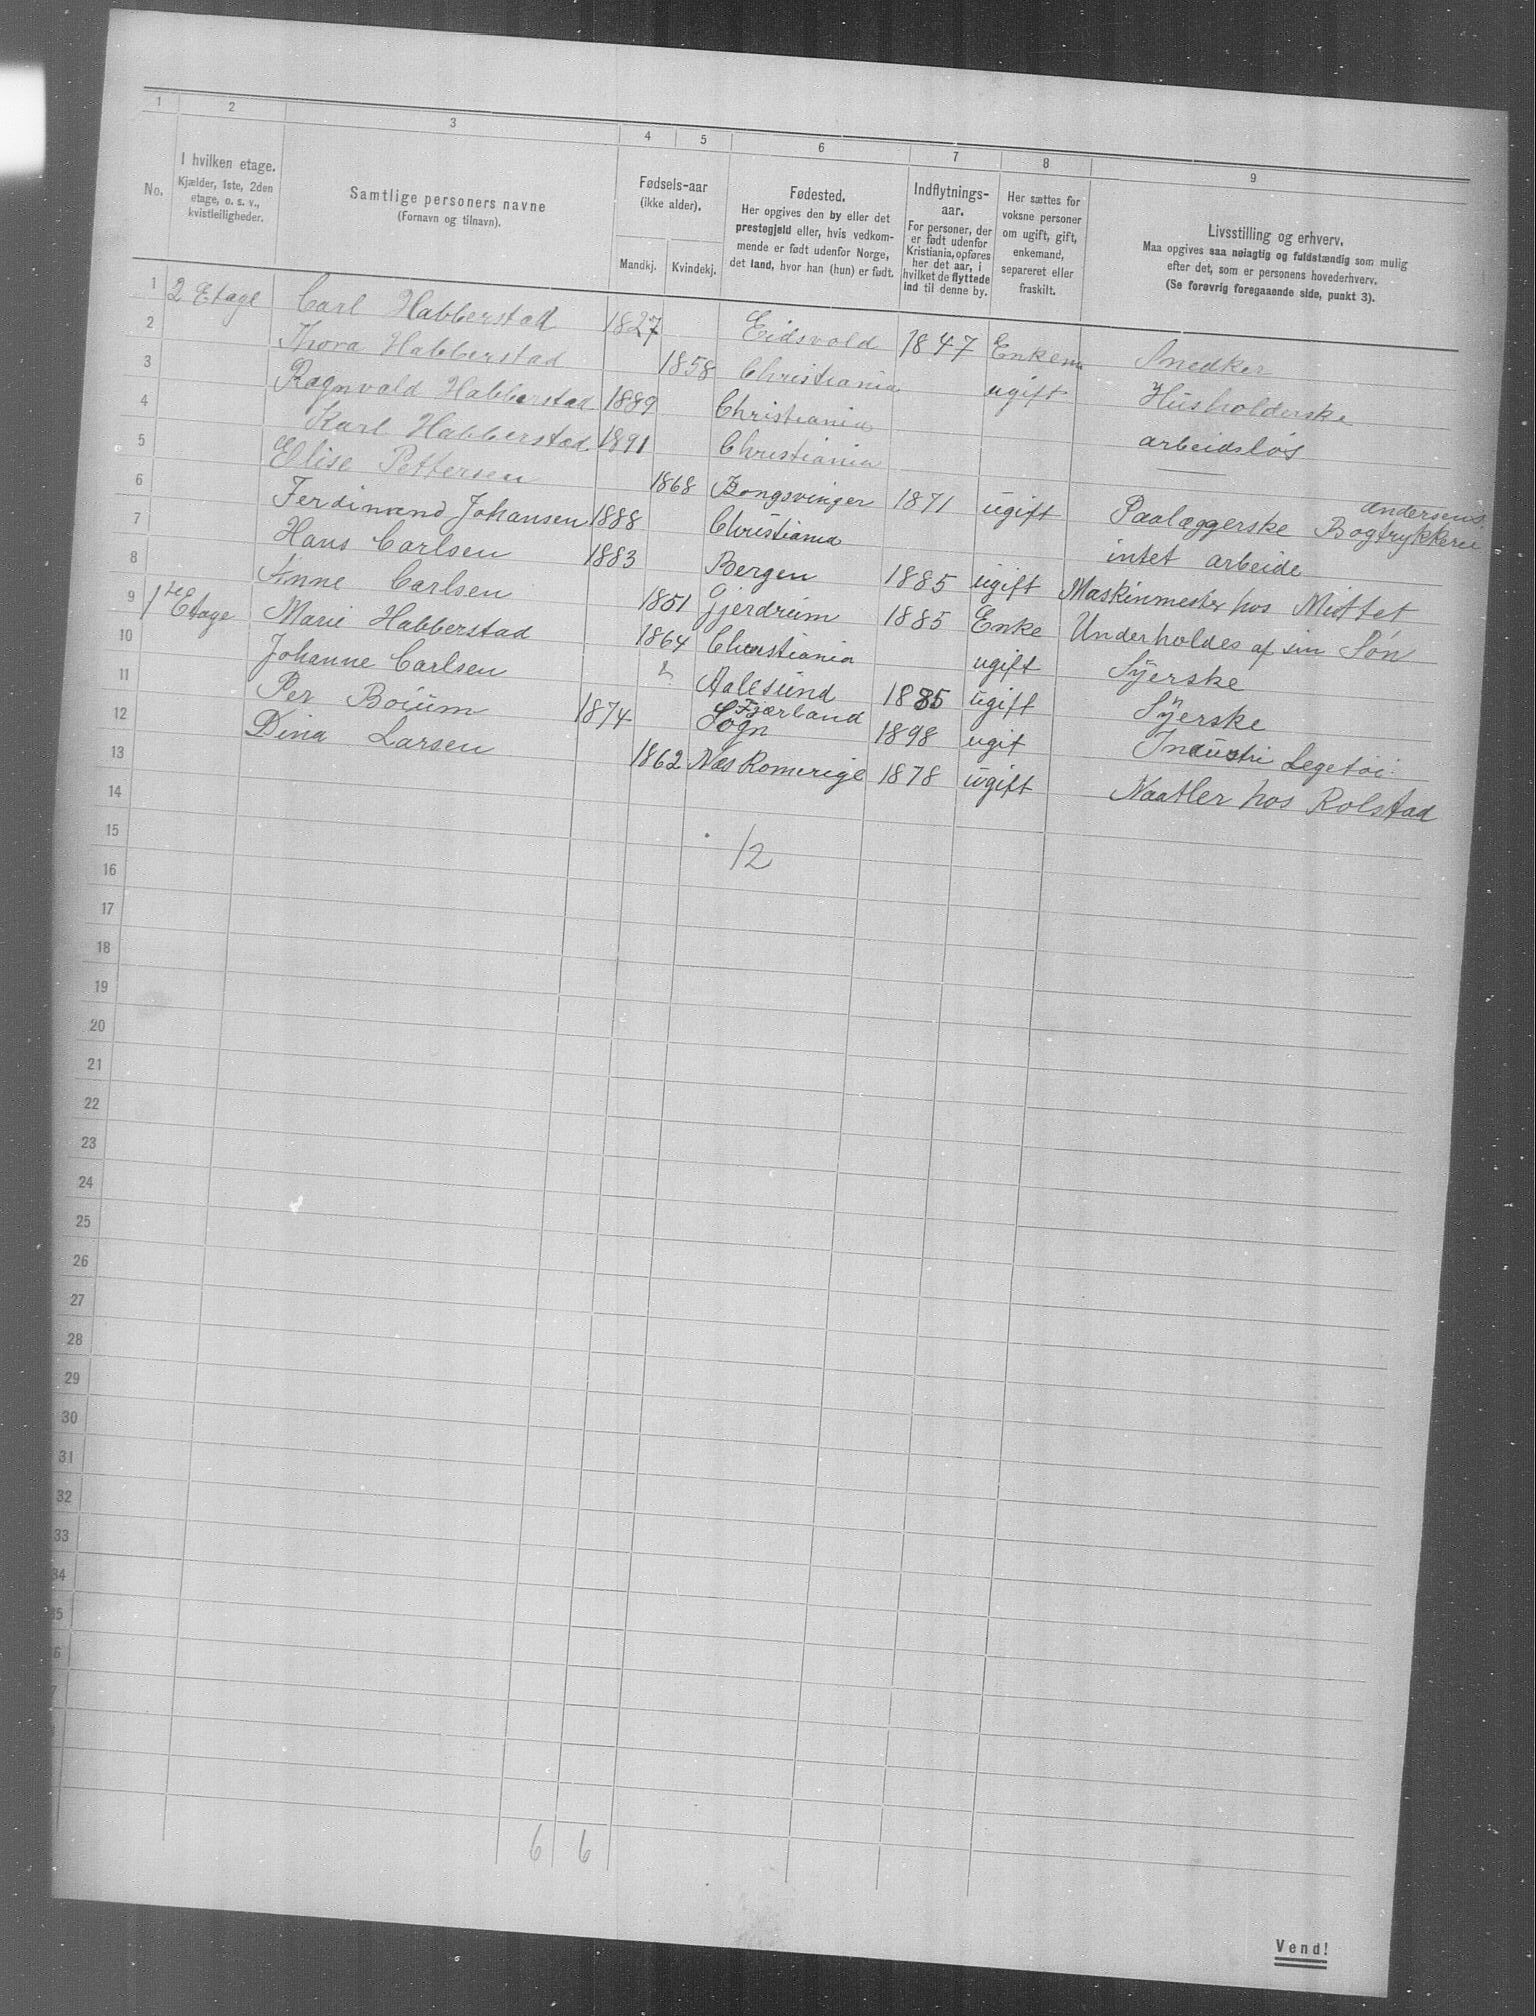 1 2 3 4 5 6 7 8 9
No.
I hvilken etage.
Kjælder, 1ste, 2den
etage, o. s. v.,
kvistleiligheder.
Samtlige personers navne
(Fornavn og tilnavn).
Fødsels-aar
(ikke alder).
Mandkj. Kvindekj.
Fødested.
Her opgives den by eller det
prestegjeld eller, hvis vedkom-
mende er født udenfor Norge,
det land, hvor han (hun) er født.
Indflytnings-
aar.
For personer, der
er født udenfor
Kristiania, opføres
her det aar, i
hvilket de flyttede
ind til denne by.
Her sættes for
voksne personer
om ugift, gift,
enkemand,
separeret eller
fraskilt.
Livsstilling og erhverv.
Maa opgives saa nøiagtig og fuldstændig som mulig
efter det, som er personens hovederhverv.
(Se forøvrig foregaaende side, punkt 3).
1 2 Etage Carl Habberstad 1827 Eidsvold 1847 Enkem Snedker
2 Thora Habberstad 1858 Christiania ugift Husholderske
3 Ragnvald Habberstad 1889 Christiania arbeidsløs
4 Karl Habberstad 1891 Christiania
5 Elise Pettersen 1868 Kongsvinger 1871 ugift Paalæggerske Andersens Bogtrykkeri
6 Ferdinand Johansen 1888 Christiania intet arbeide
7 Hans Carlsen 1883 Bergen 1885 ugift Maskinmester hos Mittet
8 Anne Carlsen 1851 Gjerdrum 1885 Enke Underholdes af sin Søn
9 1ste Etage Marie Habberstad 1864 Christiania ugift Syerske
10 Johanne Carlsen Aalesund 1885 ugift Syerske
11 Per Boium 1874 Fjærland Sogn 1898 ugift Industri Legetøi
12 Dina Larsen 1862 Næs Romerige 1878 ugift hos Rolstad
13
14
15 12
16
17
18
19
20
21
22
23
24
25
26
27
28
29
30
31
32
33
34
35
6
7
6 6
Vend!